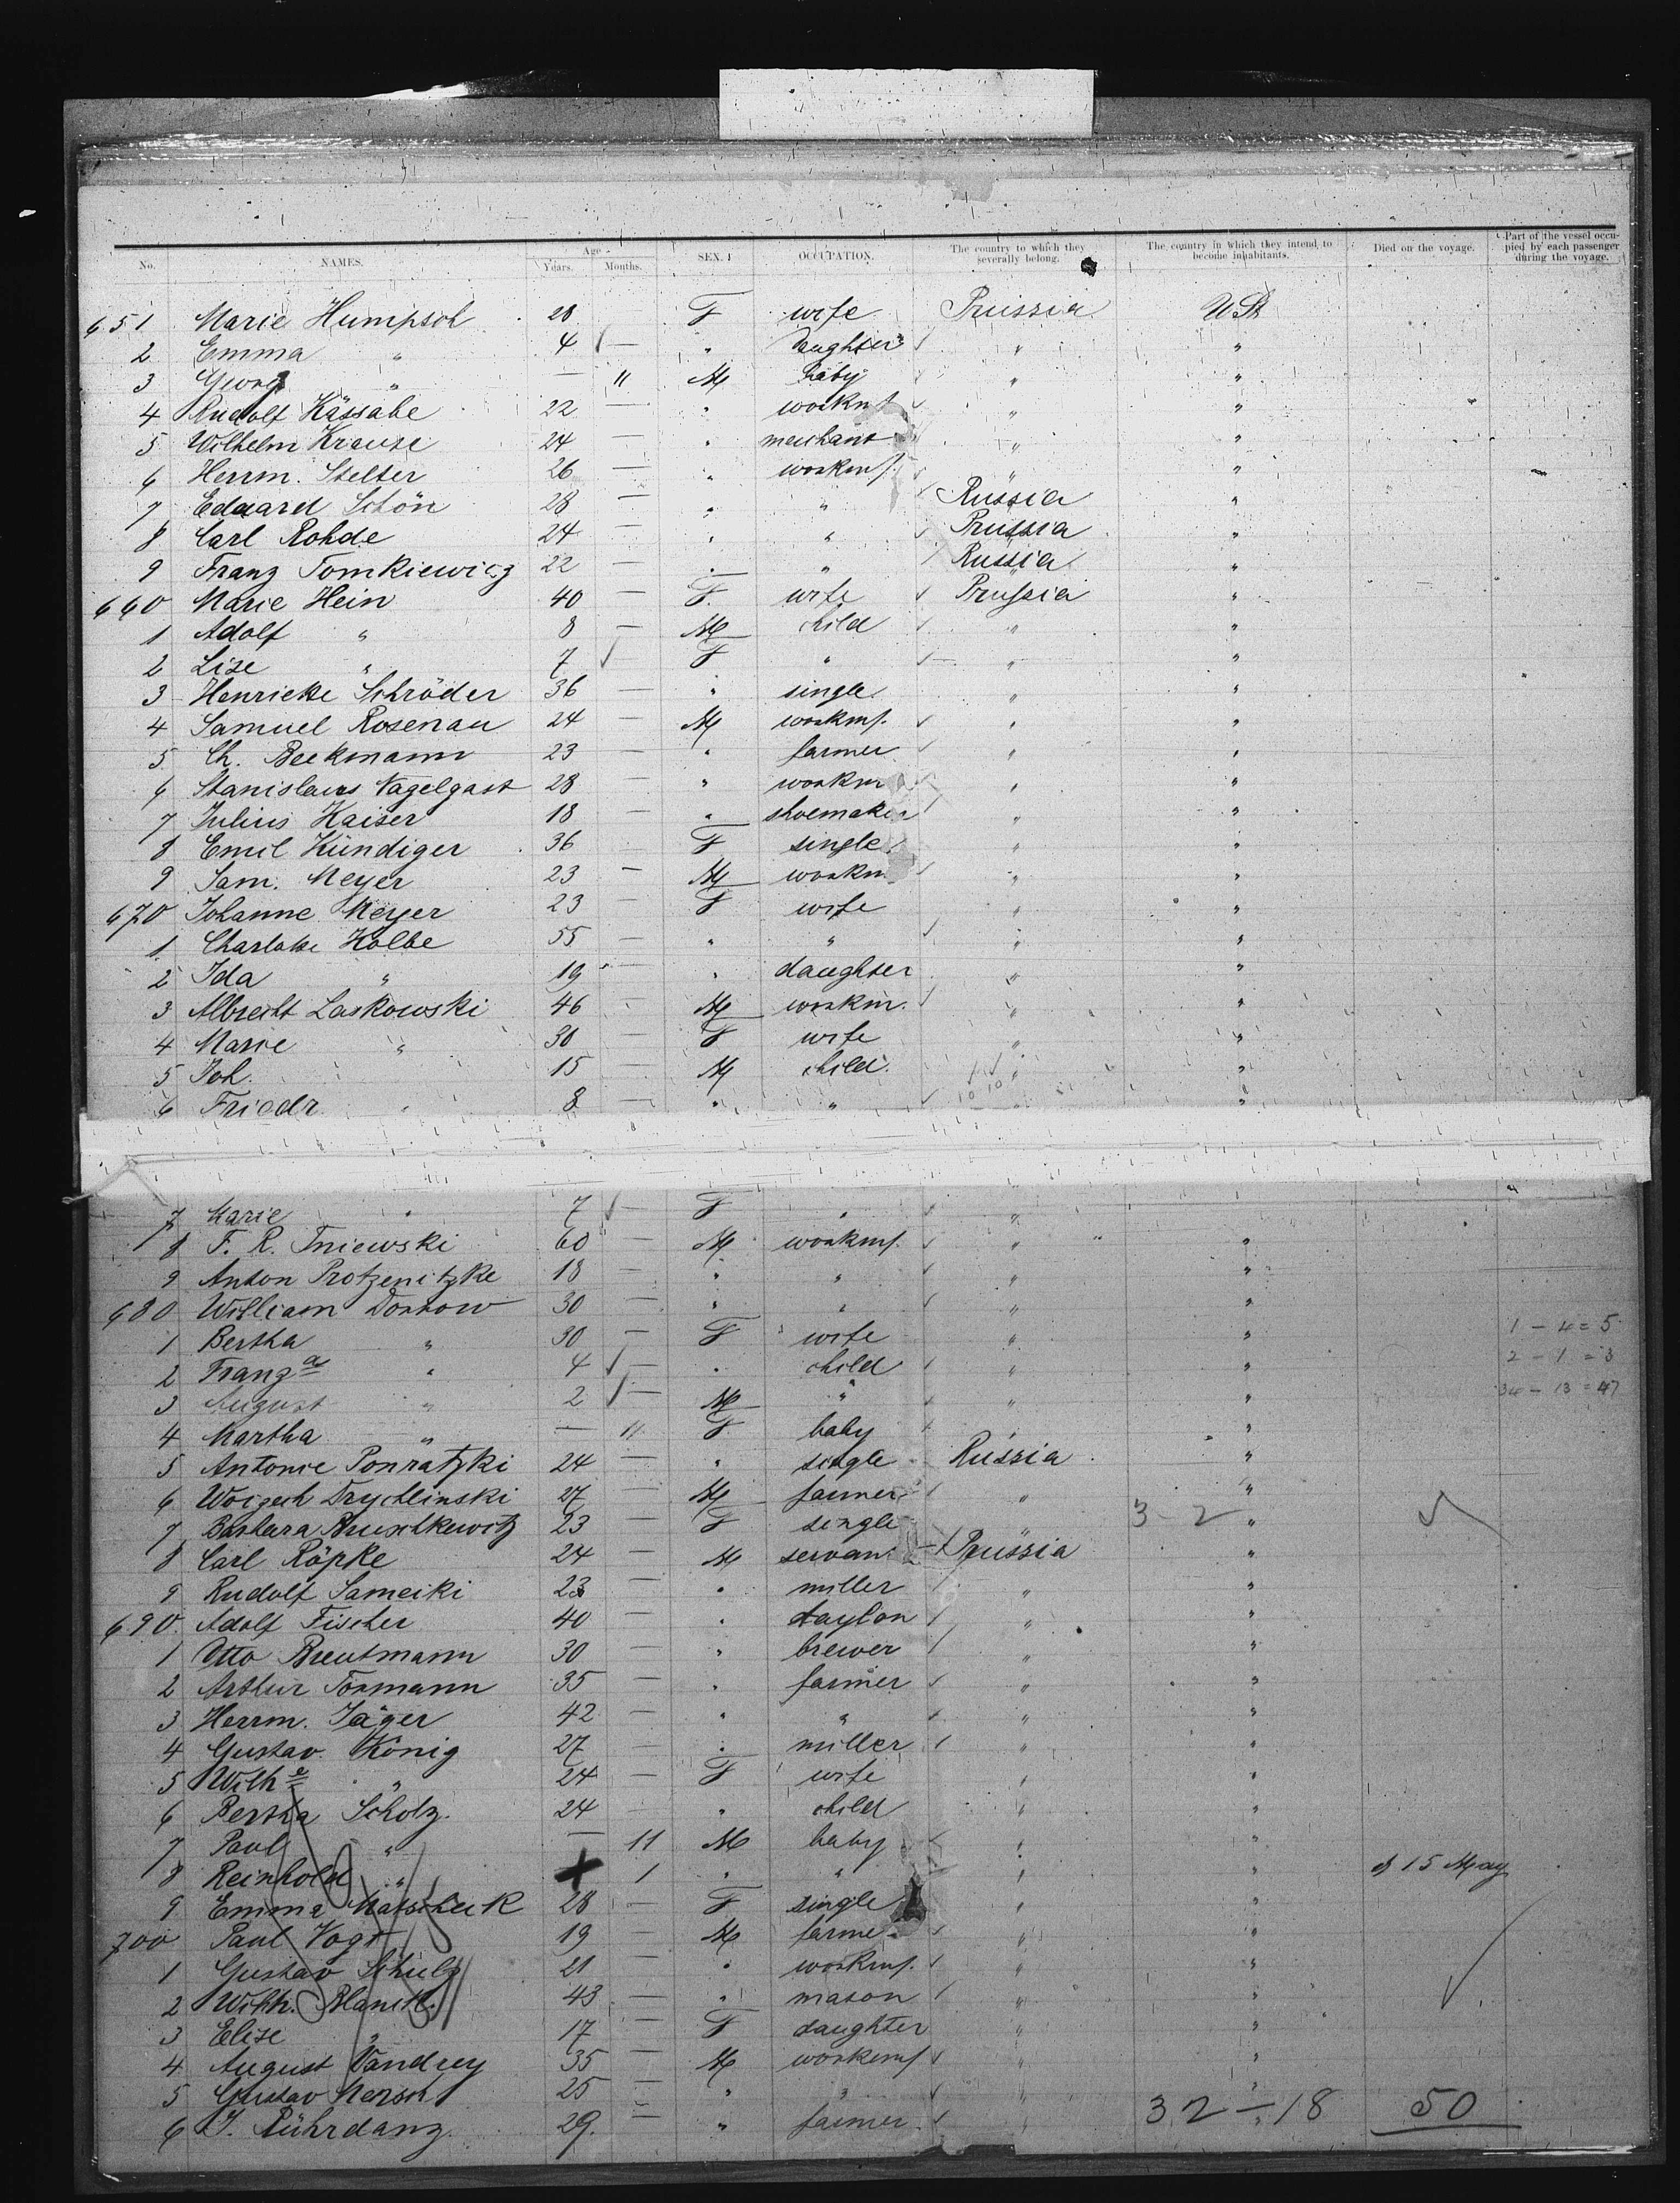 No. NAMES. Age Years. Months. SEX. OCCUPATION. The country to which they severally belong. The country in which they intend to become inhabitants. Died on the voyage. Part of the vessel occupied by each passenger during the voyage.
651 Marie Humpsch 28 F wife Prussia U St
2 Emma " 4 — " daughter " "
3 Georg " — 11 M baby " "
4 Rudolf Kässabe 22 — " workm " "
5 Wilhelm Krause 24 — " merchant " "
6 Herrm. Stelter 26 — " workm " "
7 Eduard Schön 28 — " " Russia "
8 Carl Rohde 24 — " " Prussia "
9 Franz Tomkiewicz 22 — " " Russia "
660 Marie Hein 40 — F. wife Prussia "
1 Adolf " 8 — M child " "
2 Lise " 7 — F " " "
3 Henrieke Schröder 36 — " single " "
4 Samuel Rosenau 24 — M workm. " "
5 Ch. Beekmann 23 — " farmer " "
6 Stanislaus Nagelgast 28 — " workm " "
7 Julius Kaiser 18 — " shoemaker " "
8 Emil Kündiger 36 — F single " "
9 Sam. Meyer 23 — M workm " "
670 Johanne Meyer 23 — F wife " "
1 Charlotte Kolbe 55 — " " " "
2 Ida " 19 — " daughter " "
3 Albrecht Laskowski 46 - M workm. " "
4 Marie " 30 — F wife " "
5 Joh. 15 — M child " "
6 Friedr. " 8 — " " " "
7 Marie " 7 — F " "
8 F. R. Tniewski 60 — M workm. " "
9 Anton Protzenitzke 18 — " " " "
680 William Dorrow 30 — " " " "
1 Bertha " 30 — F wife " " 1 - 4 = 5
2 Franz a " 4 — " child " " 2 - 1 = 3
3 August " 2 — M " " " 34 - 13 = 47
4 Martha " — 11 F baby " "
5 Antonie Ponratzki 24 — " single Russia "
6 Woizech Drychlinski 27 — M farmer " "
7 Barbara Bruschkewitz 23 — F single " 3 - 2 "
8 Carl Röpke 24 — M servan Prussia "
9 Rudolf Sameiki 23 — " miller " "
690 Adolf Fischer 40 — " taylor " "
1 Otto Breutmann 30 — " brewer " "
2 Arthur Tormann 35 — " farmer " "
3 Herrm. Jäger 42 — " " " "
4 Gustav König 27 — " miller " "
5 Wilh e " 24 — F wife " "
6 Bertha Scholz. 24 — " child " "
7 Paul " — 11 M baby " "
8 Reinhold " 1 " " " " d 15 May
9 Emma 28 - F single " "
700 Paul Vogt 19 — M farme " "
1 Gustav Schulz 21 — " workm. " "
2 Wilh. 43 — " mason " "
3 Elise " 17 — F daughter " "
4 August Vandrey 35 — M workm " "
5 Gustav Mersch 25 — " " " "
6 J. Rührdanz 29. — " farmer " " 32 — 18 50